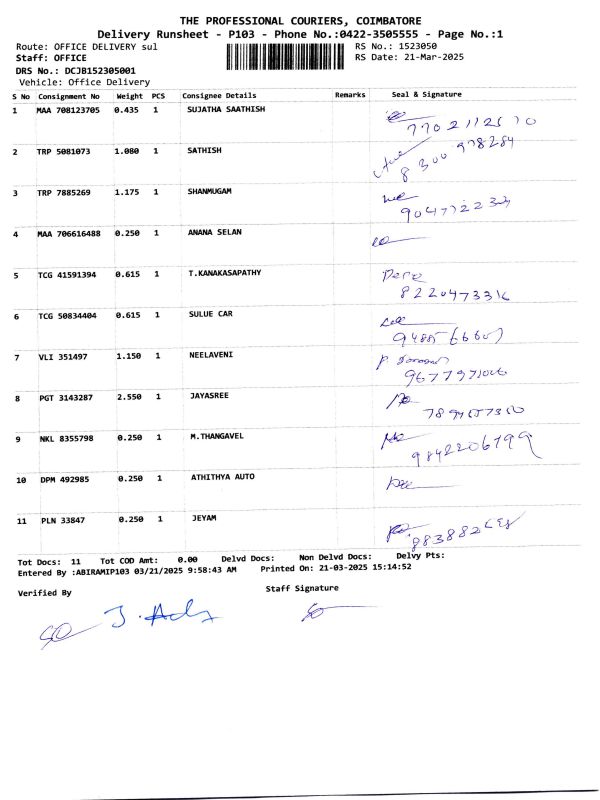 THE PROFESSIONAL COURIERS, COIMBATORE
Delivery Runsheet - P103 - Phone No.:0422-3505555 - Page No.:1
Route: OFFICE DELIVERY sul RS No.: 1523050
Staff: OFFICE RS Date: 21-Mar-2025
DRS No.: DCJB152305001
Vehicle: Office Delivery
S No Consignment No Weight PCS Consignee Details Remarks Seal & Signature
1 MAA 708123705 0.435 1 SUJATHA SAATHISH
2 TRP 5081073 1.080 1 SATHISH
8300 978284
3 TRP 7885269 1.175 1 SHANMUGAM
4 MAA 706616488 0.250 1 ANANA SELAN
5 TCG 41591394 0.615 1 T.KANAKASAPATHY
8220473316
6 TCG 50834404 0.615 1 SULUE CAR
7 VLI 351497 1.150 1 NEELAVENI
8 PGT 3143287 2.550 1 JAYASREE
9 NKL 8355798 0.250 1 M.THANGAVEL
9842206799
10 DPM 492985 0.250 1 ATHITHYA AUTO
11 PLN 33847 0.250 1 JEYAM
Tot Docs: 11 Tot COD Amt: 0.00 Delvd Docs: Non Delvd Docs: Delvy Pts:
Entered By :ABIRAMIP103 03/21/2025 9:58:43 AM Printed On: 21-03-2025 15:14:52
Verified By Staff Signature